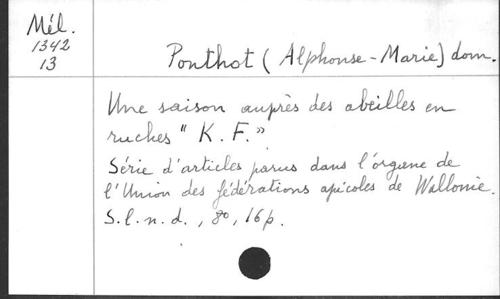 Mél.
1342
13
Ponthot (Alphonse-Marie) dom.
Une saison auprès des abeilles en
ruches "K. F."
Série d'articles parus dans l'organe de
l'Union des fédérations apicoles de Wallonie.
S.l.n.d., 8o, 16p.